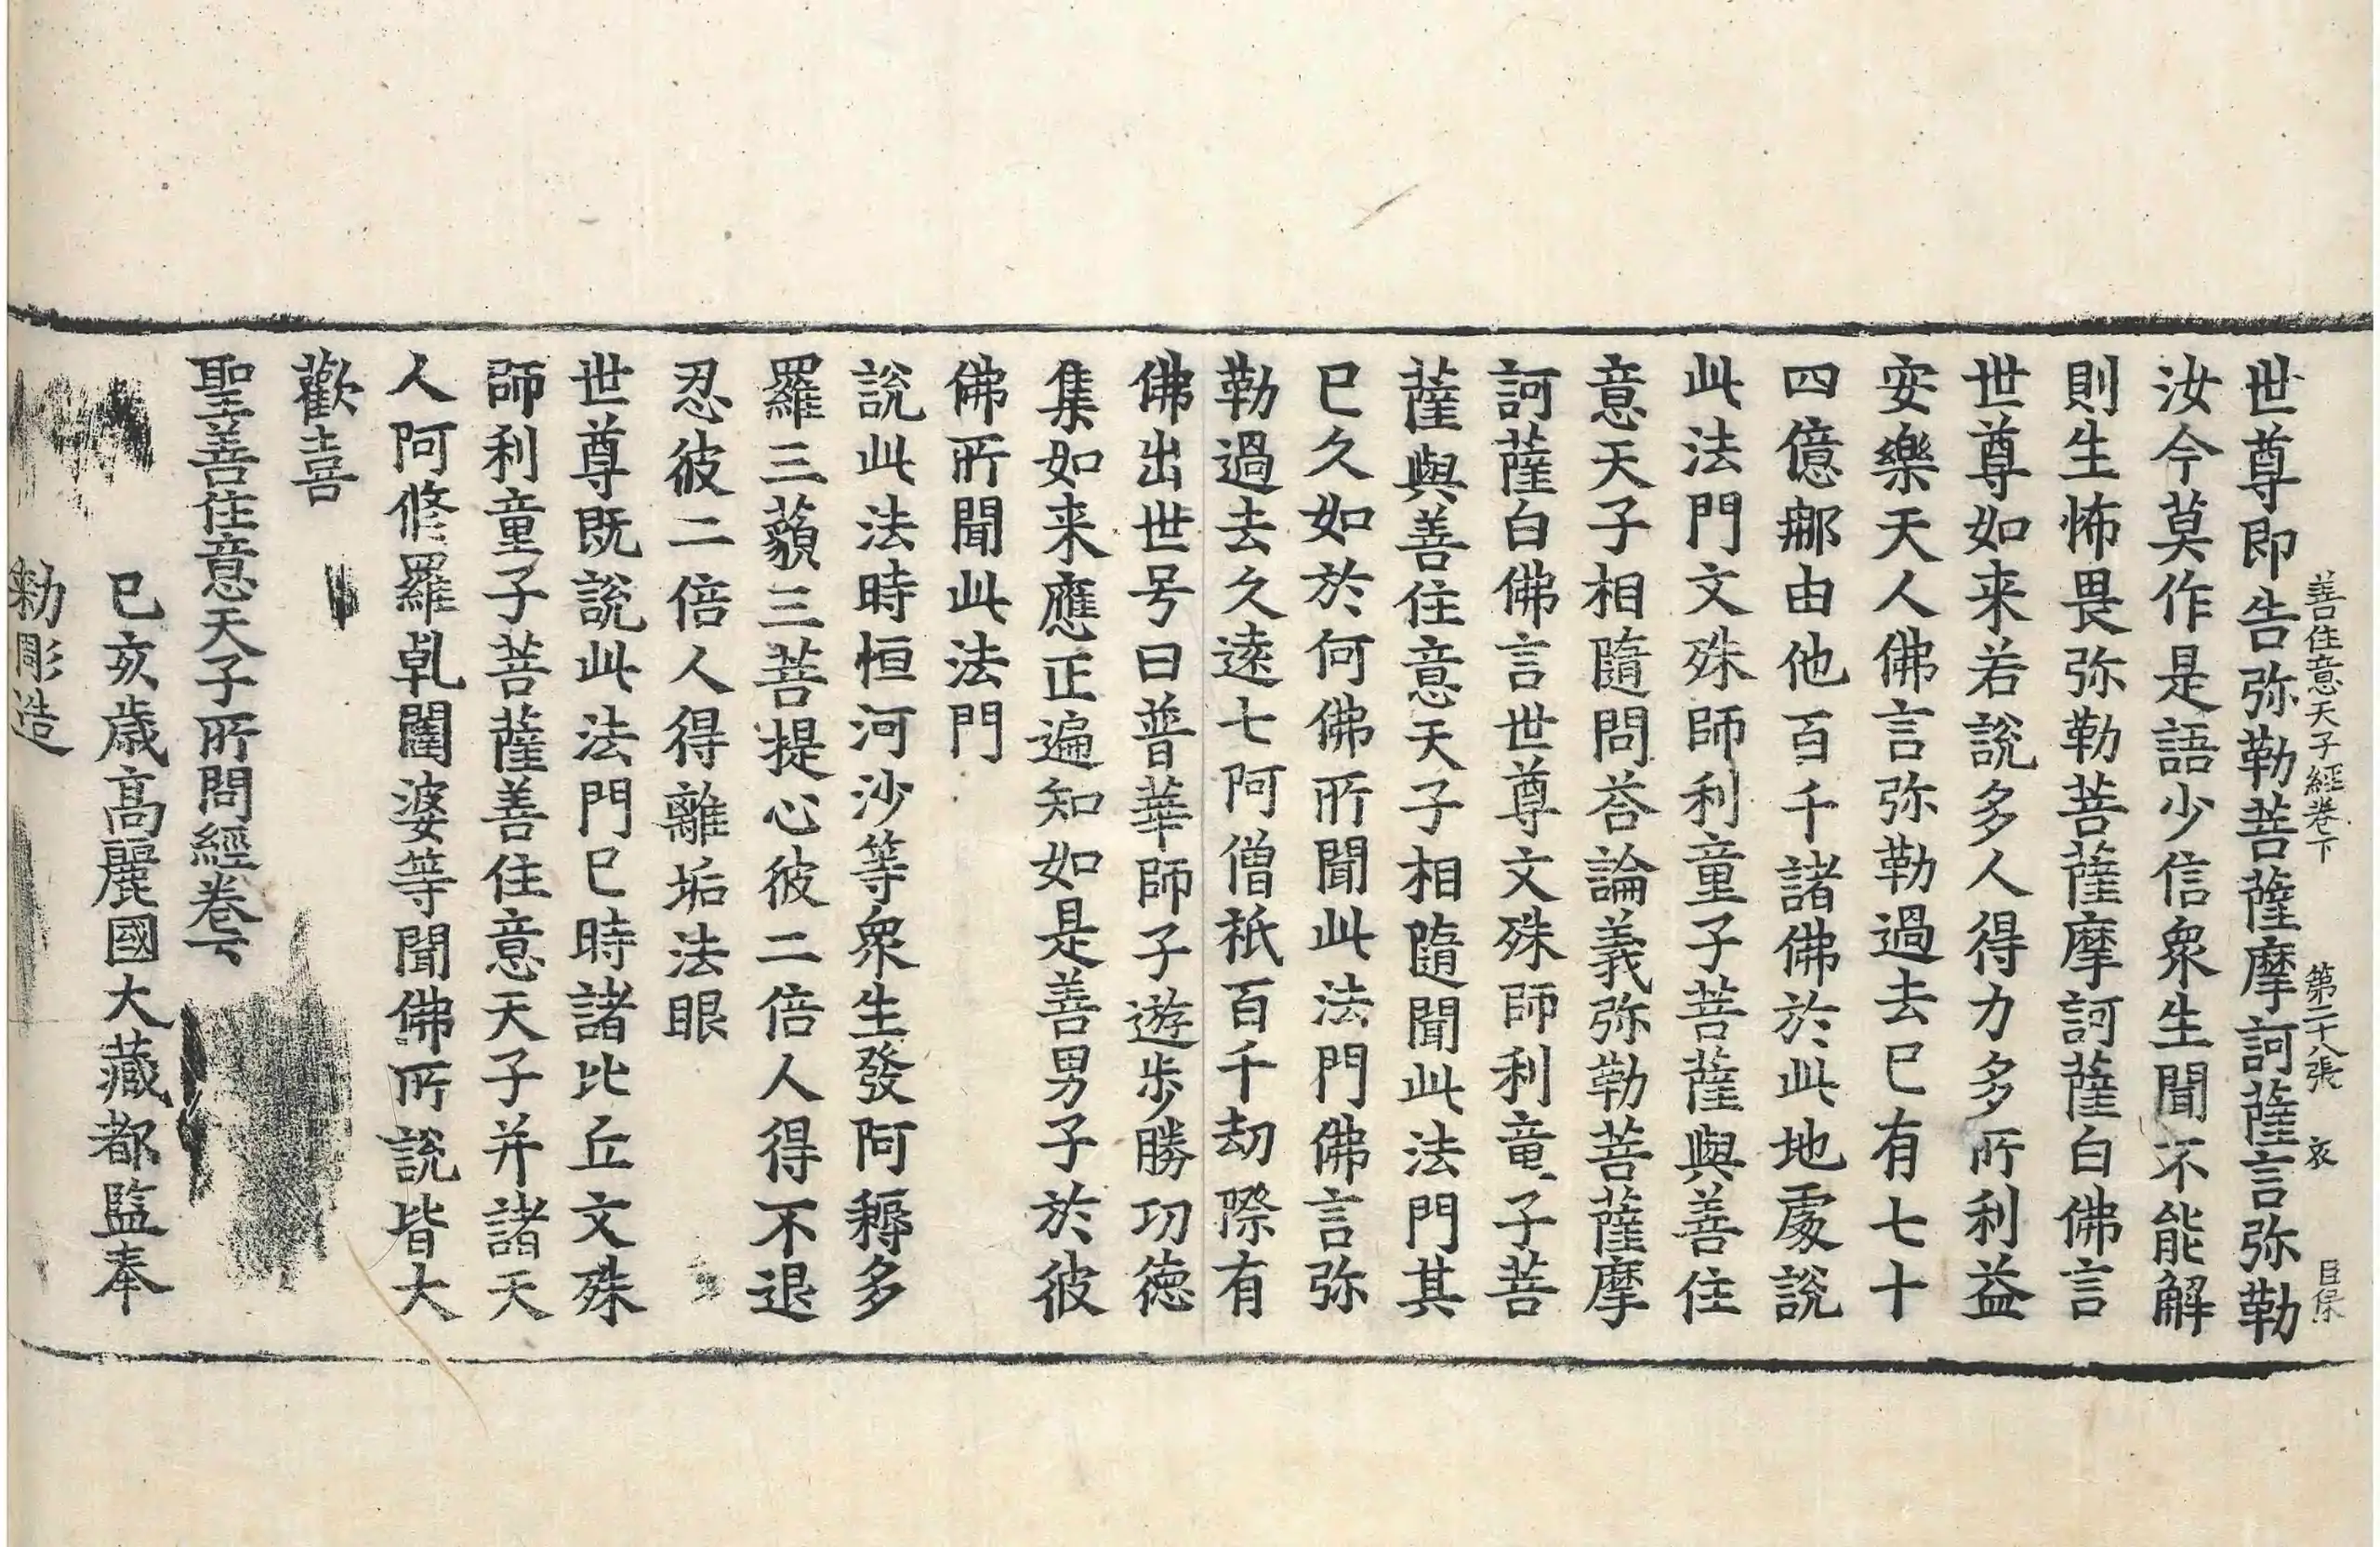 善住意天子經卷下 第二十八張 衣 巨保
世尊即告弥勒菩薩摩訶薩言弥勒
汝今莫作是語少信衆生聞不能解
則生怖畏弥勒菩薩摩訶薩白佛言
世尊如来若說多人得力多所利益
安樂天人佛言弥勒過去已有七十
四億那由他百千諸佛於此地處說
此法門文殊師利童子菩薩與善住
意天子相隨問荅論義弥勒菩薩摩
訶薩白佛言世尊文殊師利童子菩
薩與善住意天子相隨聞此法門其
已久如於何佛所聞此法門佛言弥
勒過去久遠七阿僧祇百千劫際有
佛出世号曰普華師子遊步勝功德
集如来應正遍知如是善男子於彼
佛所聞此法門
說此法時恒河沙等衆生發阿耨多
羅三藐三菩提心彼二倍人得不退
忍彼二倍人得離垢法眼
世尊既說此法門已時諸比丘文殊
師利童子菩薩善住意天子并諸天
人阿修羅乹闥婆等聞佛所說皆大
歡喜
聖善住意天子所問經卷下
己亥歲高麗國大藏都監奉
勑彫造